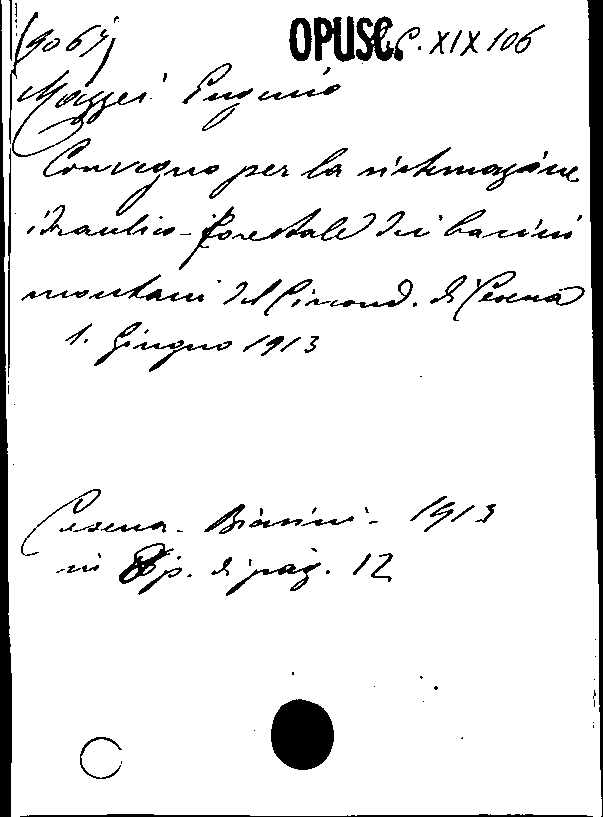 (9064) OPUSC. C. XIX 106
Mazzei Eugenio
Convegno per la sistemazione
idraulico-forestale dei bacini
montani del Circond. di Cesena
1. Giugno 1913
Cesena - Biasini - 1913
in 8º p. di pag. 12